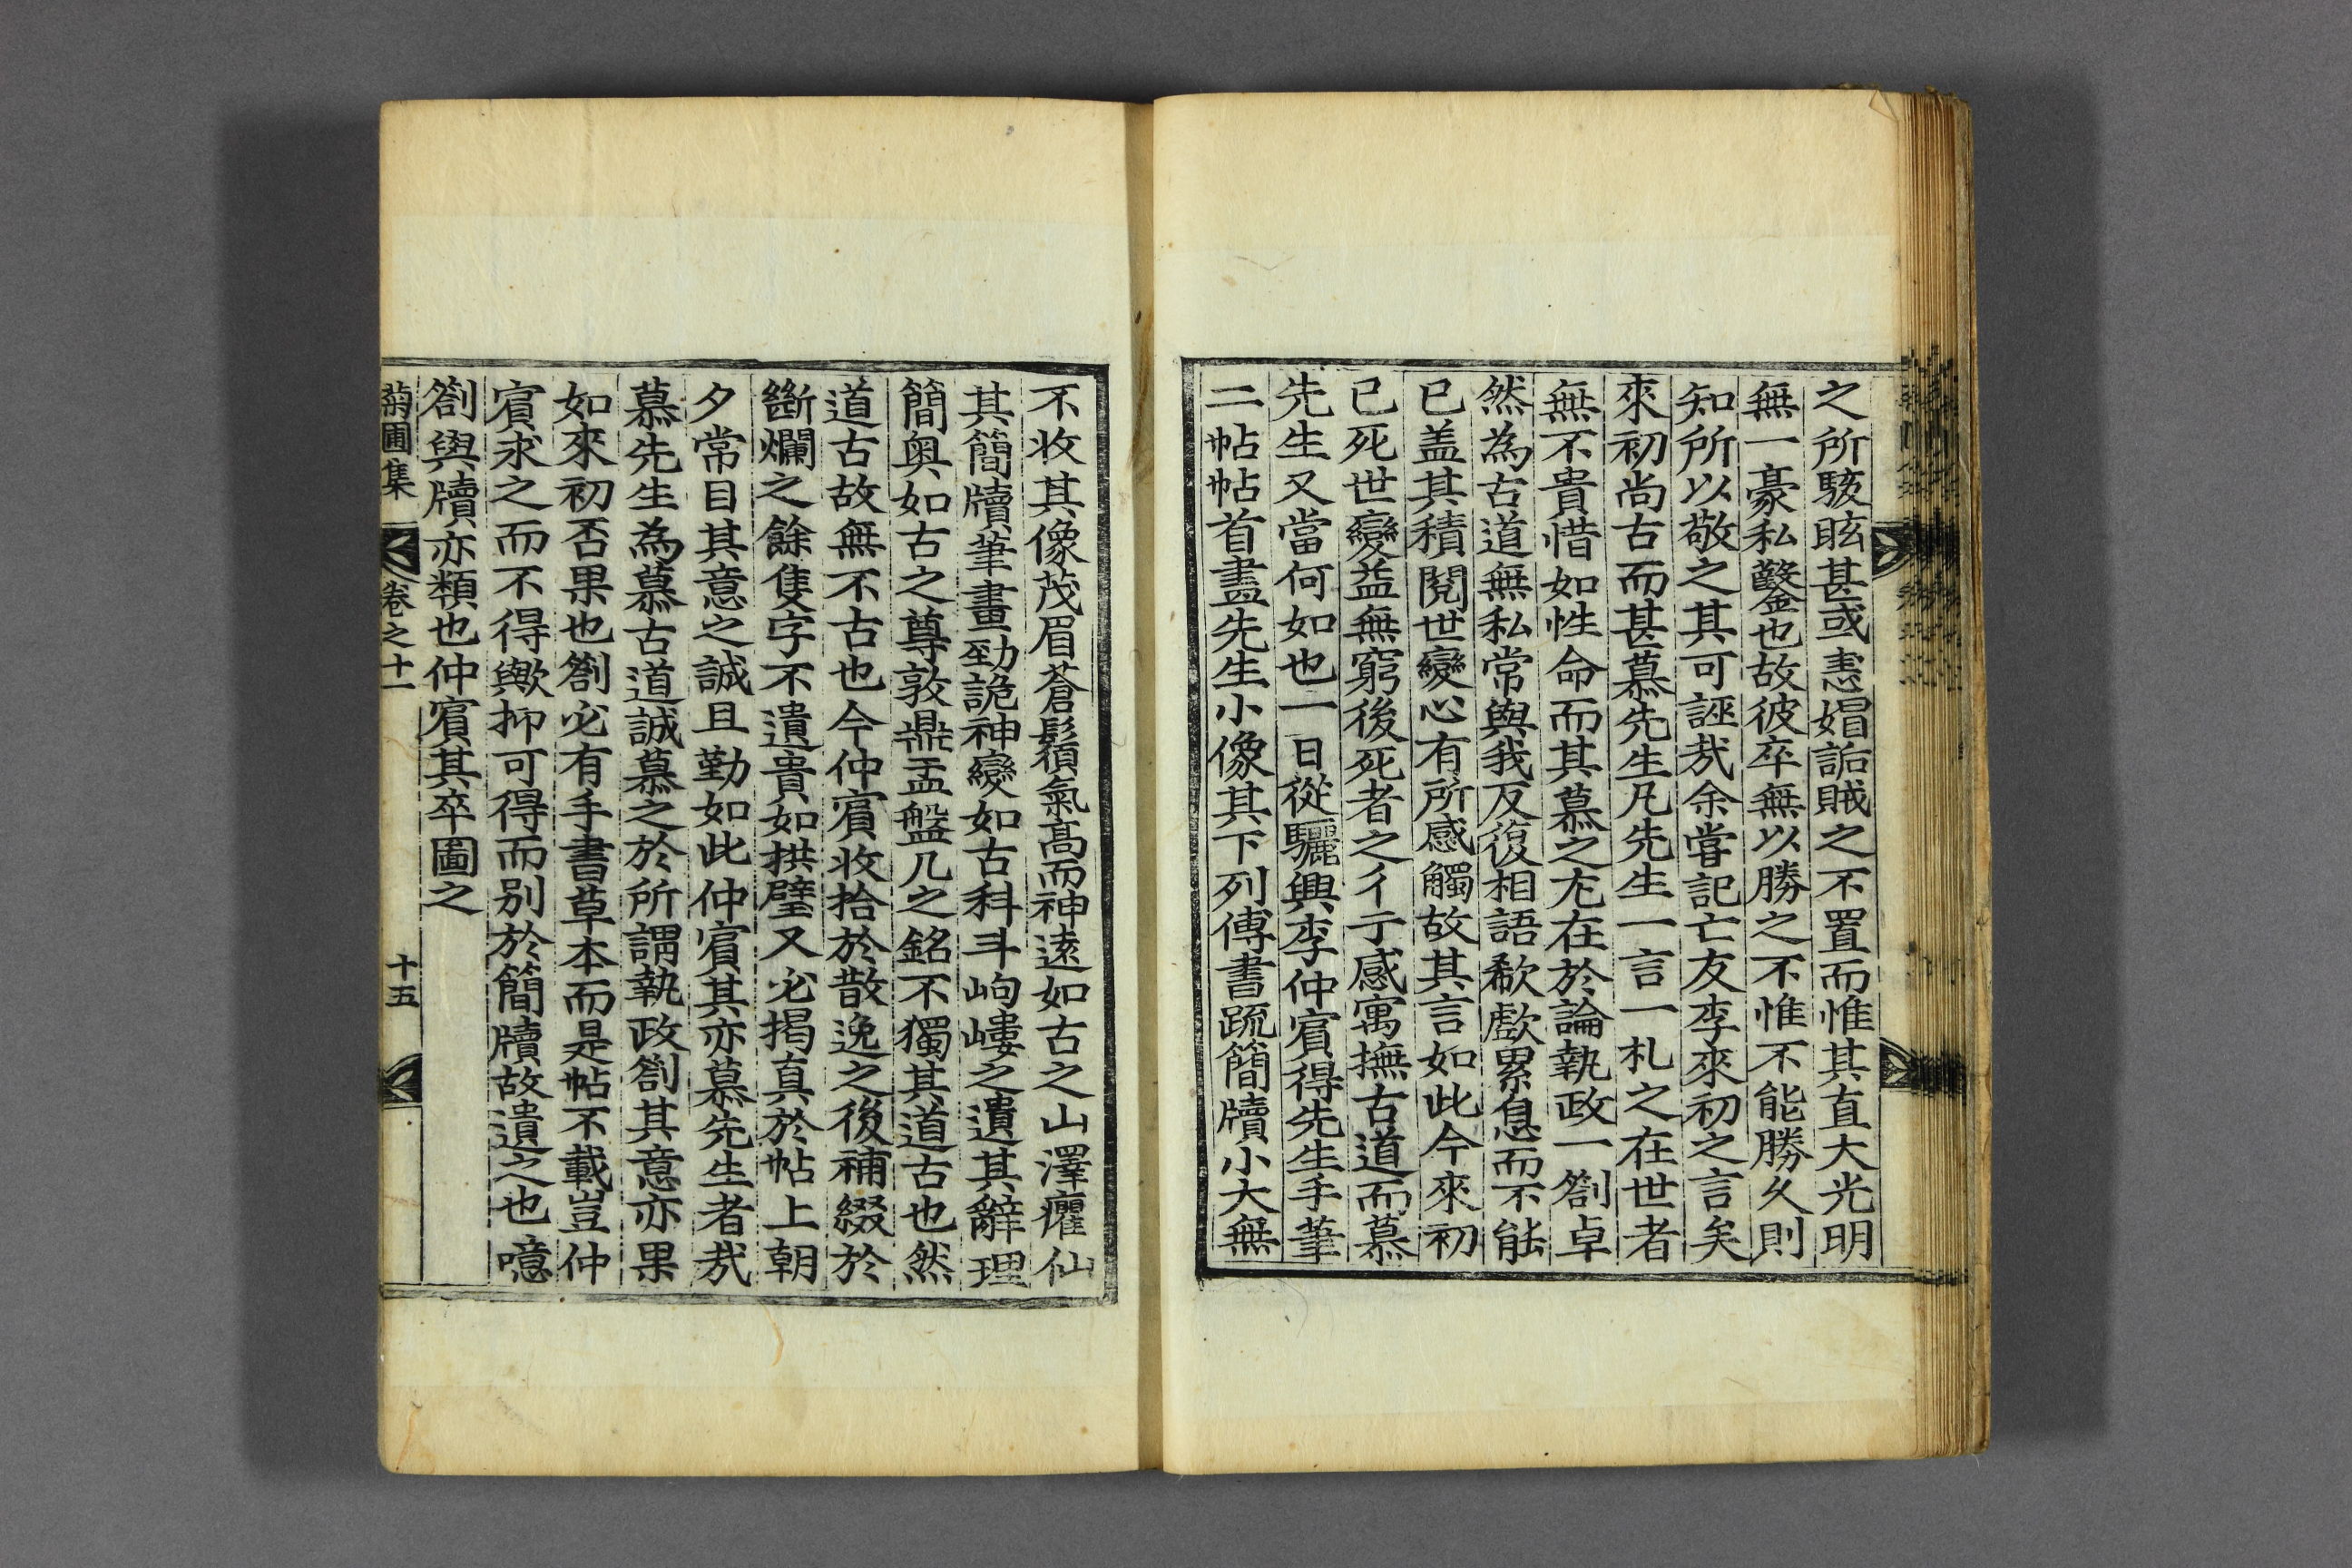 之所駭眩甚或恚媢詬賊之不置而惟其直大光明
無一豪私鑿也故彼卒無以勝之不惟不能勝久則
知所以敬之其可誣㢤余嘗記亡友李來初之言矣
來初尚古而甚慕先生凡先生一言一札之在世者
無不貴惜如性命而其慕之尤在於論執政一劄卓
然為古道無私常與我反復相語欷歔累息而不能
已盖其積閱世變心有所感觸故其言如此今來初
已死世變益無窮後死者之彳亍感寓撫古道而慕
先生又當何如也一日從驪興李仲賓得先生手筆
二帖帖首盡先生小像其下列傅書疏簡牘小大無
不收其像茂眉蒼鬚氣高而神遠如古之山澤癯仙
其簡牘筆畫勁詭神變如古科斗岣嶁之遺其辭理
簡奧如古之尊敦鼎盂盤几之銘不獨其道古也然
道古故無不古也今仲賓收拾於散逸之後補綴於
斷爛之餘隻字不遺貴如拱璧又必揭真於帖上朝
夕常目其意之誠且勤如此仲賓其亦慕先生者㢤
慕先生為慕古道誠慕之於所謂執政劄其意亦果
如來初否果也劄必有手書草本而是帖不載豈仲
賓求之而不得歟抑可得而別於簡牘故遺之也噫
劄與牘亦類也仲賓其卒圖之
菊圃集 卷之十一 十五